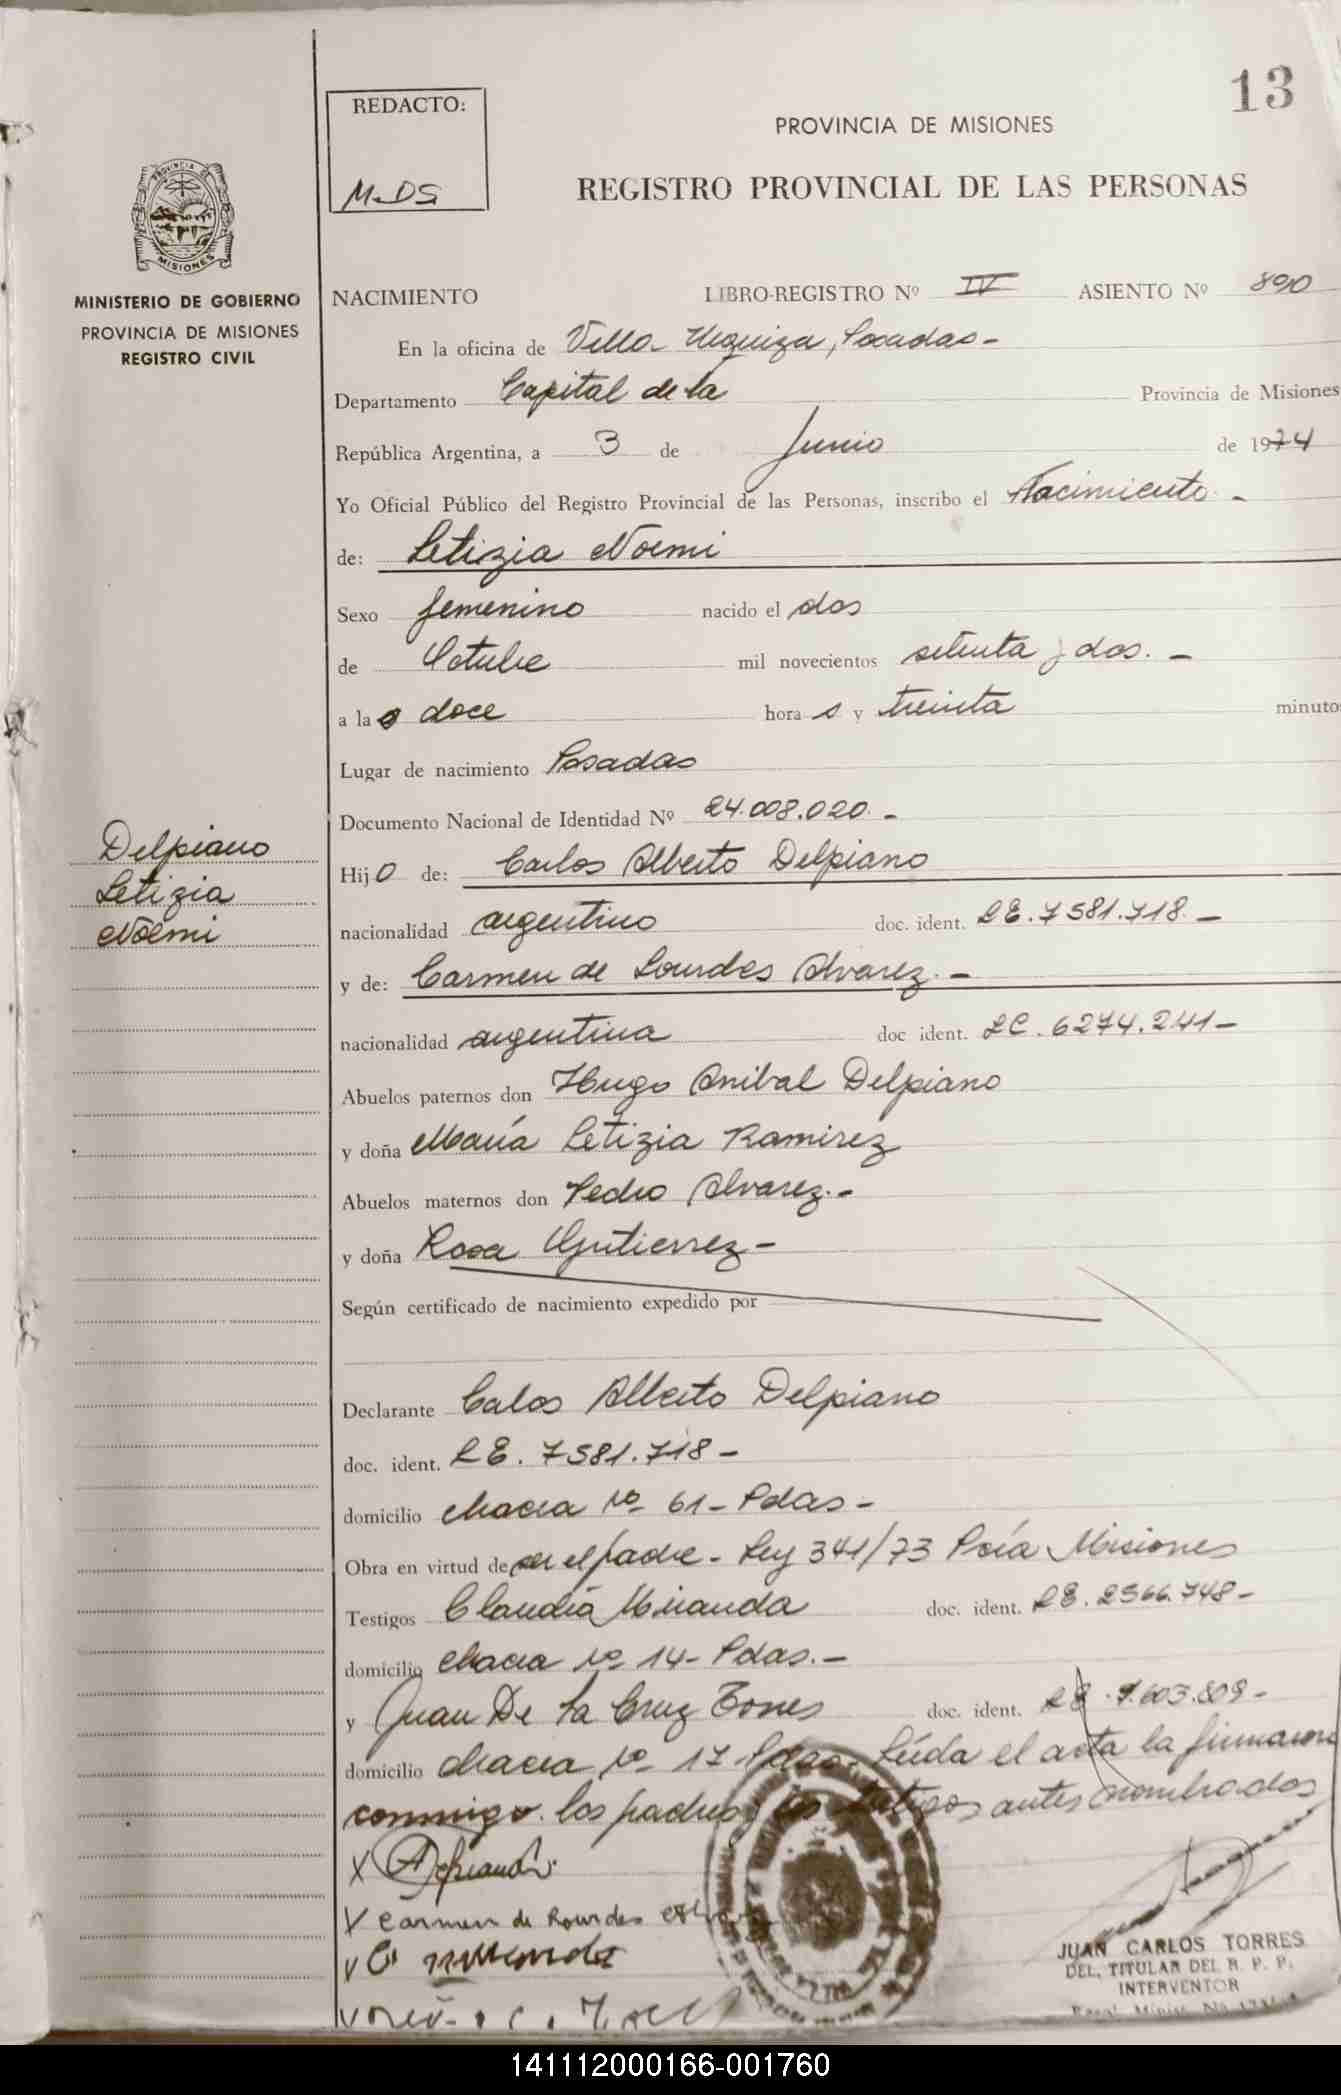 13
REDACTO:
M.DS
PROVINCIA DE MISIONES
REGISTRO PROVINCIAL DE LAS PERSONAS
PROVINCIA DE
MISIONES
MINISTERIO DE GOBIERNO
PROVINCIA DE MISIONES
REGISTRO CIVIL
NACIMIENTO LIBRO-REGISTRO Nº IV ASIENTO Nº 890
En la oficina de Villa Urquiza, Posadas-
Departamento Capital de la Provincia de Misiones
República Argentina, a 3 de Junio de 1974
Yo Oficial Público del Registro Provincial de las Personas, inscribo el Nacimiento -
de: Letizia Noemi
Sexo femenino nacido el dos
de Octubre mil novecientos setenta y dos. -
a las doce horas y treinta minuto
Lugar de nacimiento Posadas
Documento Nacional de Identidad Nº 24.008.020. -
Delpiano
Letizia
Noemi
Hijo de: Carlos Alberto Delpiano
nacionalidad argentino doc. ident. LE. 7581.718. -
y de: Carmen de Lourdes Alvarez. -
nacionalidad argentina doc ident. LC. 6274.241-
Abuelos paternos don Hugo Anibal Delpiano
y doña María Letizia Ramirez
Abuelos maternos don Pedro Alvarez.-
y doña Rosa Gutierrez-
Según certificado de nacimiento expedido por
Declarante Calos Alberto Delpiano
doc. ident. LE. 7581.718-
domicilio chacra Nº 61- Pdas-
Obra en virtud de ser el padre- Ley 341/73 Pcía Misiones
Testigos Claudia Miranda doc. ident. LE. 2566.748-
domicilio chacra Nº 14- Pdas.-
y Juan De la Cruz Torres doc. ident. LE .7.603.809-
domicilio chacra Nº 17 Pdas. Leída el acta la firmaron
conmigo los padres y los testigos antes nombrados
X
X Carmen de Lourdes
X C Miranda
JUAN CARLOS TORRES
DEL. TITULAR DEL R. P. P.
INTERVENTOR
141112000166-001760